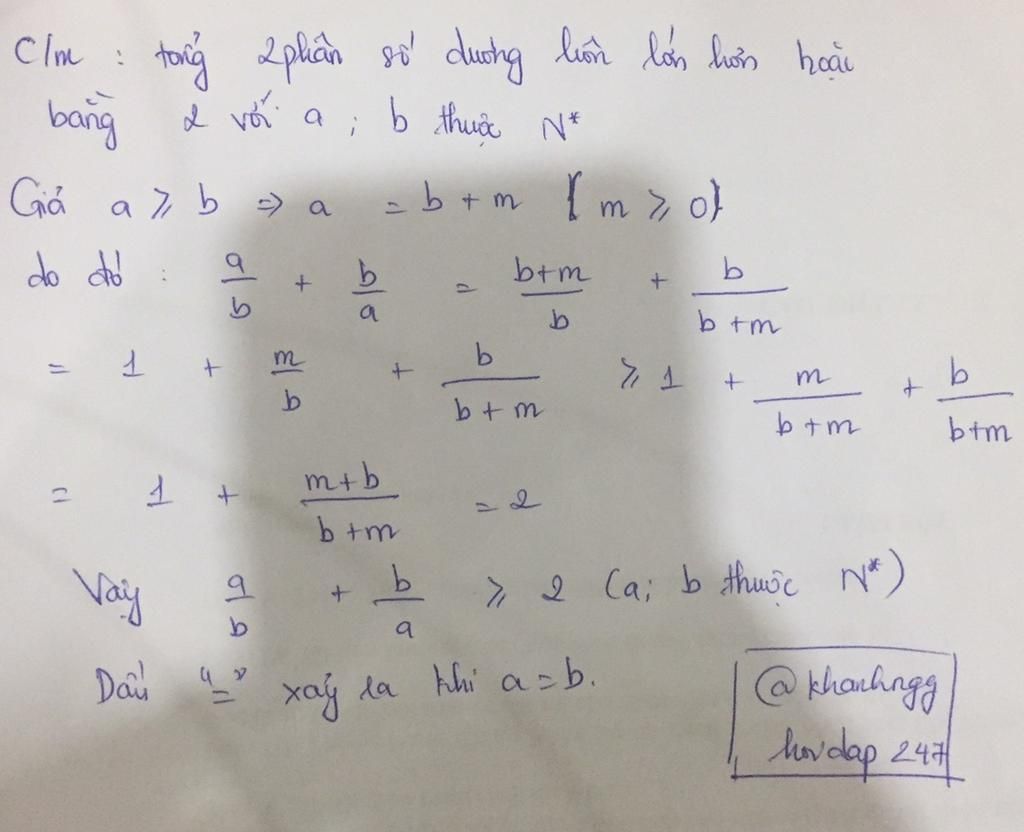 C/m : tổng 2 phân số dương luôn lớn hơn hoặc
bằng 2 với a ; b thuộc N*
Giả a ≥ b ⇒ a = b + m [ m ≥ 0}
do đó : a/b + b/a = (b+m)/b + b/(b+m)
= 1 + m/b + b/(b+m) ≥ 1 + m/(b+m) + b/(b+m)
= 1 + (m+b)/(b+m) = 2
Vậy a/b + b/a ≥ 2 (a; b thuộc N*)
Dấu "=" xảy ra khi a = b.
@khanhngg
hoidap 247